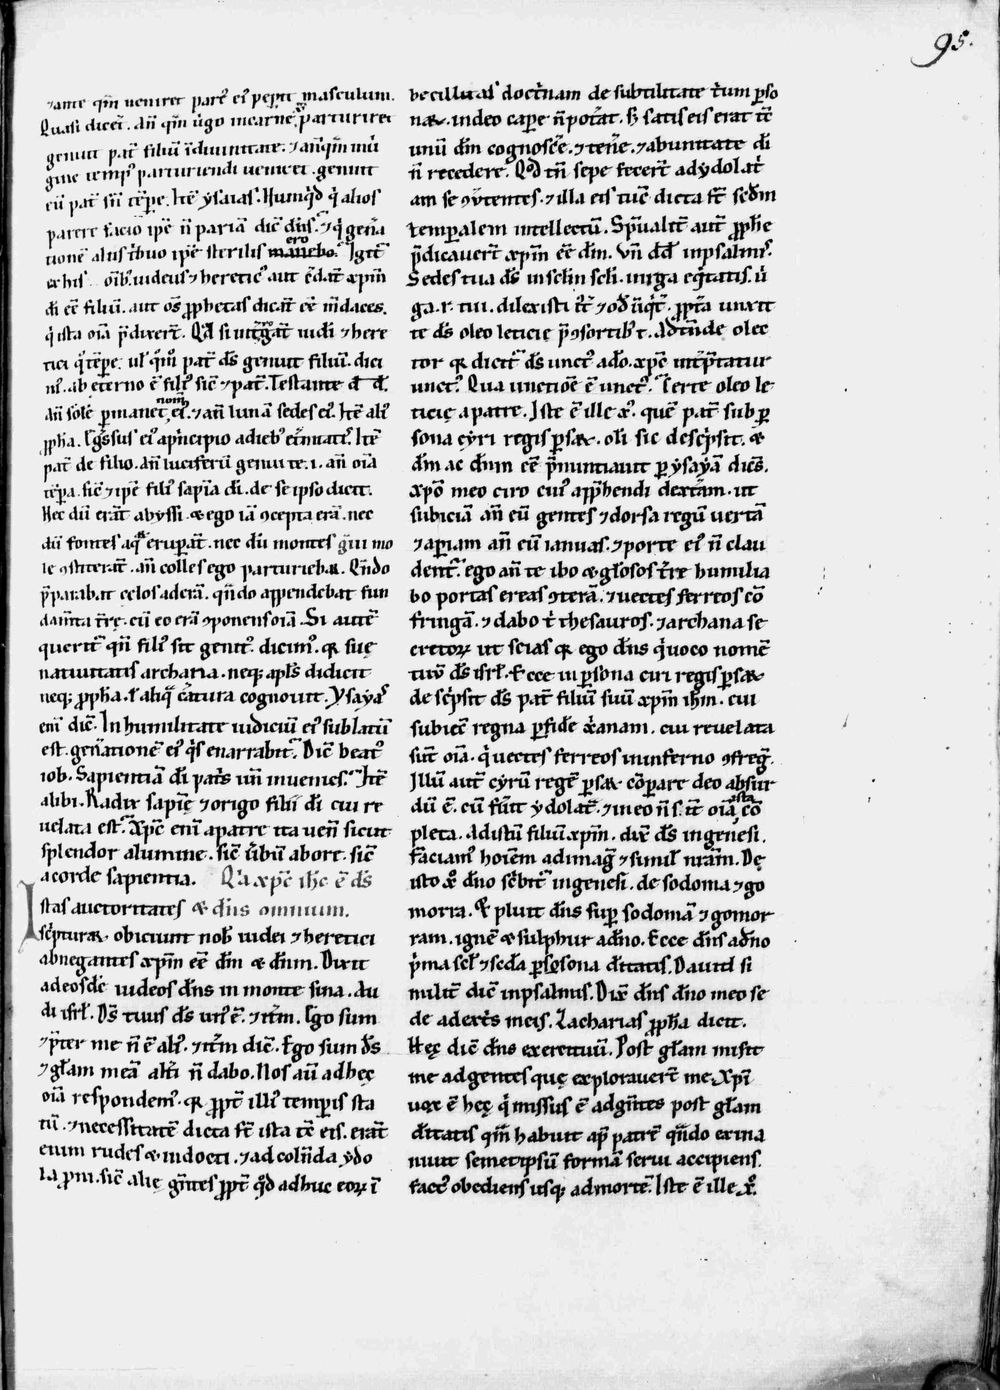 95.
⁊ante qm̄ ueniret part᷒ ei᷒ peꝑit masculum.
Quasi dicet᷒. an̄ qm̄ uͥgo incarne᷒ parturiret
genuit pat᷒ filiū ī diuinitate. ⁊ anͥqm̄ inuͥ
gine temp᷒ parturiendi ueniret. genuit
eū pat᷒ sn̄ tēpe. Itē ysaias. Numqͥd qͥ alios
parere facio ipē n̄ pariā diē dn̄s. ⁊ qͥ genͣa
tionē aliis tͥbuo ipē sterilis manebo ero. Igit᷒
ex his oīb᷒ iudeus ⁊ heretic᷒ aut ēdat᷒ xp̄m
dī eē filiū. aut oēs ꝓphetas dicat᷒ eē mͣdaces.
qͥ ista oīa p̄dixer̄t.
tici qͥ tēpe. ul᷒ qͥm᷒ pat᷒ ds̄ genuit filiū. dici
m᷒. ab eterno ē fili᷒ sic̄ ⁊ pat᷒. Testante d̄ d̄.
an̄ solē permanet nom̄ ei᷒. ⁊ an̄ lunā sedes ei᷒. Itē ali᷒
ꝓpha. Egͥssus ei᷒ apͥncipio adieb᷒ et᷒nitati᷒. Itē
pat᷒ de filio. an̄ luciferū genui te. i. an̄ oīa
tēpa. sic̄ ⁊ ipē fili᷒ sapīa dī. de se ipso dicit.
Nec dū erāt abyssi. & ego iā ꝯcepta erā. nec
dū fontes aqͣ eruperāt. nec dū montes gͣui mo
le ꝯstiterāt. an̄ colles ego parturiebaꝛ. Qn̄do
p̄parabat celos aderā. qn̄do appendebat fun
dam̄ta tr̄e. cū eo erā ꝯponens oīa. Si autē
querit᷒ qn̄ fili᷒ sit genit᷒. dicim᷒. qꝛ suę
natiuitatis archana. neq; apl̄s didicit
neq; ꝓpha. l᷒ aliqͣ cͣatura cognouit. Ysayas
eni diē. In humilitate iudiciū ei᷒ sublatū
est. genͣationē ei᷒ qͥs enarrabit᷒. Diē beat᷒
iob. Sapientiā dī patͥs un̄ inuenies. Itē
alibi. Radix sapię ⁊ origo filii dī cui re
uelata est. Xp̄c eni a patre ita uen̄ sicut
splendor a lumine. sic̄ ūbū ab ore. sic̄
a corde sapientia. Qͣ xp̄c ih̄c ē ds̄
Istas auctoritates & dn̄s omnium.
scͥpturaꝝ. obiciunt nob᷒ iudei ⁊ heretici
abnegantes xp̄m eē dm̄ & dn̄m. Dixit
ad eosdē iudeos dn̄s in monte sina. Au
di isrl̄. Ds̄ tuus ds̄ un᷒ ē. ⁊ itm̄. Ego sum
⁊ pter me n̄ ē ali᷒. ⁊ itm̄ diē. Ego sum ds̄
⁊ gl̄am meā altͥi n̄ dabo. Nos aū ad hęc
oīa respondem᷒. qꝛ ꝓpt᷒ illi᷒ temporis sta
tū. ⁊ necessitatē dicta st̄ ista tē eis. erāt
enim rudes & indocti. ⁊ ad colēda ydo
la pͥni. sic̄ alię gn̄tes ꝓpt᷒ qͦd adhuc eoꝝ ī
becillitas doctͥnam de subtilitate tͥum ꝑso
naꝝ. in deo capere n̄ poterat. s; satis eis erat tē
unū dm̄ cognoscē. ⁊ tenē. ⁊ ab unitate dī
n̄ recedere. Qͦd tn̄ sepe fecer̄t ad ydolatͥ
am se ꝯuertentes. ⁊ illa eis tuē dicta st̄ scdm̄
temporalem intellectū. Sp̄ualit᷒ aut̄ ꝓphe
p̄dicauer̄t xp̄m eē dm̄. Vn̄ dd̄ in psalmis.
Sedes tua ds̄ in sclm scl̄i. uirga eqͥtatis. uͥ
ga. r. tui. dilexisti
te ds̄ oleo leticię p̄ ꝯsortib᷒ t.
tor qꝛ dicit᷒ ds̄ unct᷒ a dō. xp̄c int᷒p̄tatur
unct᷒. Qua unctiōe ē unct᷒. Certe oleo le
ticię a patre. Iste ē ille xͦ. quē pat᷒ sub ꝑ
sona cyri regis ꝑsaꝝ. oli sic descͥpsit. &
dm̄ ac dn̄m eē p̄nuntiauit per ysayā dicēs.
Xpō meo ciro cui᷒ app̄hendi dextͣam. ut
subiciā an̄ eū gentes ⁊ dorsa regū uertā
⁊ aperiam an̄ eū ianuas. ⁊ porte ei᷒ n̄ clau
dent᷒. ego an̄ te ibo & gl̄osos tr̄e humilia
bo portas ereas ꝯterā. ⁊ uectes ferreos cō
fringā. ⁊ dabo tͥ thesauros. ⁊ archana se
cretoꝝ ut scias qꝛ ego dn̄s qͥ uoco nomē
tuū ds̄ isrl̄. Ecce in ꝑsona ciri regis ꝑsaꝝ
descͥpsit ds̄ pat᷒ filiū suū xp̄m ih̄m. cui
subiecͥ regna per fidē xͥanam. cui reuelata
sūt oīa. qͥ uectes ferreos in inferno ꝯfregͥ.
Illū aut̄ cyrū regē ꝑsaꝝ cōparare deo absur
dū ē. cū fūit ydolatͣ. ⁊ in eo n̄ s̄t oīa ista cō
pleta. Ad istū filiū xp̄m. dix̄ ds̄ in genesi.
Faciam᷒ hoīem ad imagͥ ⁊ simil᷒ nr̄am. De
isto xͦ dn̄o scͥbit᷒ in genesi. de sodoma ⁊ go
morra. Et pluit dn̄s super sodomā ⁊ gomor
ram. ignē & sulphur a dn̄o. Ecce dn̄s a dn̄o
pͥma scl᷒ ⁊ scda ꝑsona dītatis. Dauid si
milit᷒ diē in psalmis. Dix̄ dn̄s dn̄o meo se
de a dextͥs meis. Zacharias ꝓpha dicit.
Hęc diē dn̄s exercituū. Post gl̄am misit
me ad gentes quę explorauer̄t me. Xp̄i
uox ē hęc qͥ missus ē ad gn̄tes post gl̄am
dītatis qm̄ habuit ap̄ patrē qn̄do exina
niuit semetipsū formā serui accipiens.
fact᷒ obediens usq; ad mortē. Iste ē ille xͦ.